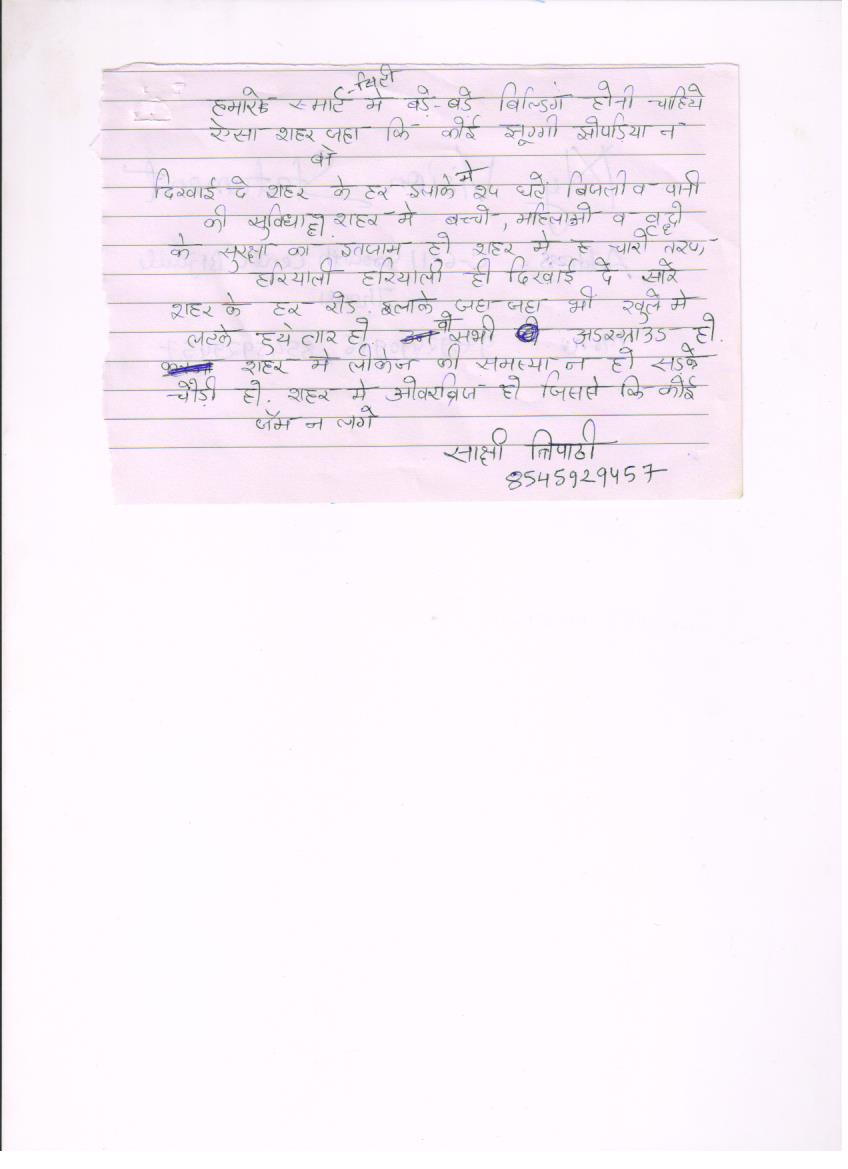 हमारे स्मार्ट सिटी मे बड़े-बड़े बिल्डिंग होनी चाहिये
ऐसा शहर जहा कि कोई झुग्गी झोपड़िया न
दिखाई दे शहर के हर इलाके मे घंटे बिजली व पानी
की सुविधा हो. शहर मे बच्चो, महिलाओ व वृद्धो
के सुरक्षा का इतजाम हो शहर मे चारो तरफ
हरियाली हरियाली ही दिखाई दे. सारे
शहर के हर रोड इलाके जहा जहा भी खुले मे
लटके हुये तार हो. वो सभी अडरग्राउड हो.
शहर मे लीकेज की समस्या न हो सडके
चौड़ी हो. शहर मे ओवरब्रिज हो जिससे कि कोई
जॅम न लगे
साक्षी त्रिपाठी
8545929457